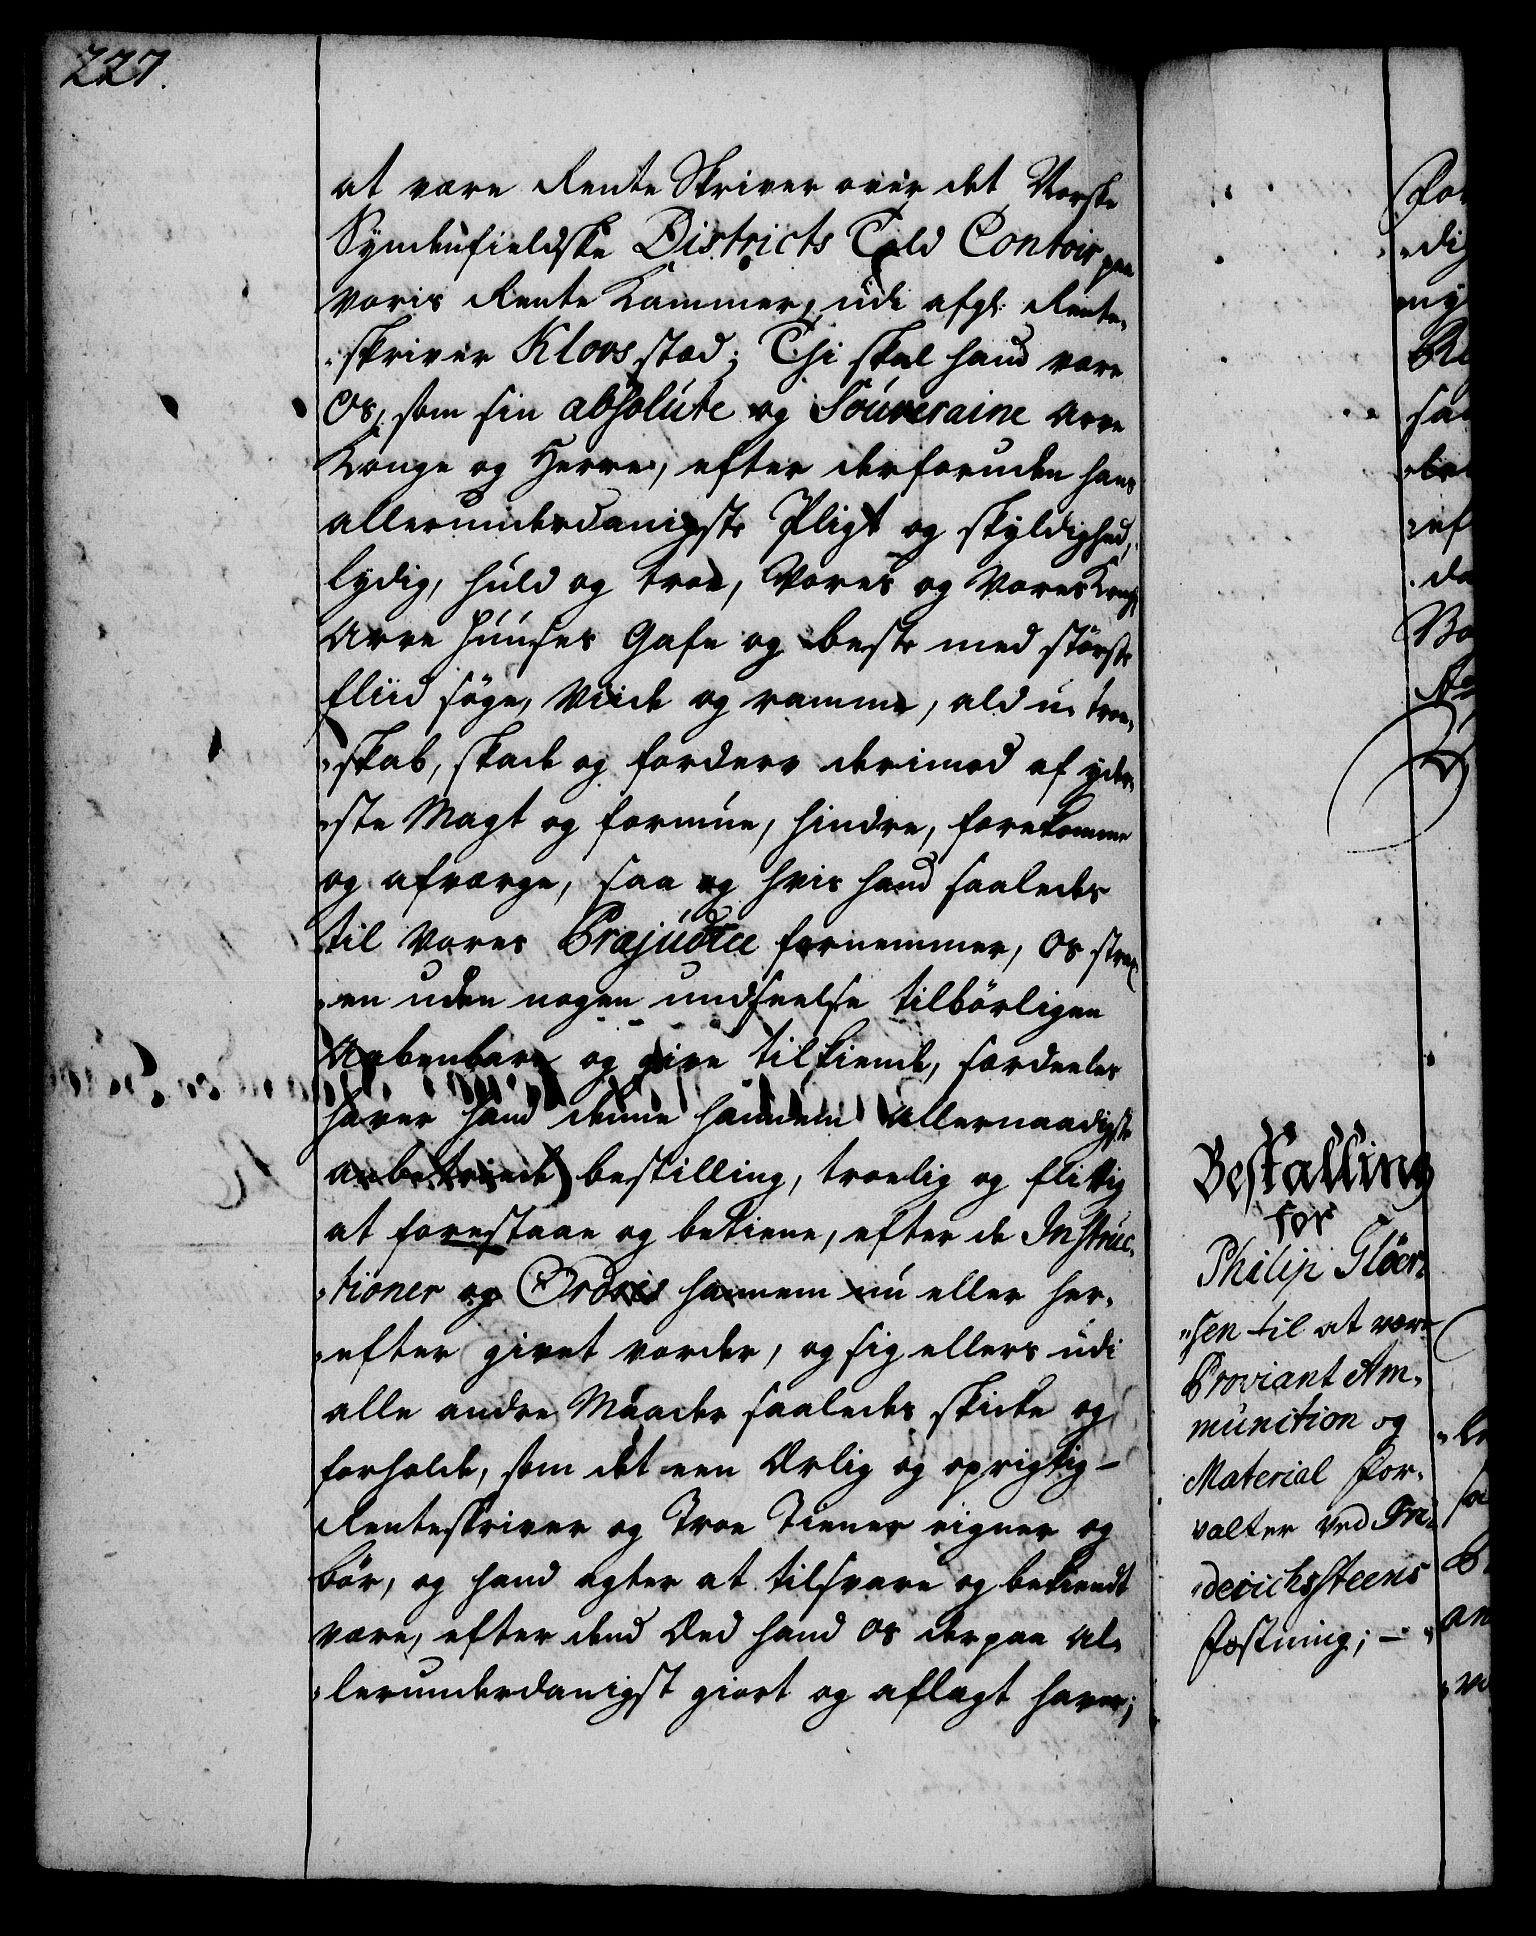 227.
at være Rente Skriver over det Norske
Syndenfieldske Districts Told Contoir paa
voris Rente Kammer, udi afgl: Rente-
-skriver Kloos stæd; Thi skal hand være
Os, som sin absolute og Souveraine Arve
Konge og Herre, efter derforuden hans
allerunderdanigste Pligt og skyldighed,
lydig, huld og troe, Vores og Vores Kongl
Arve Huuses Gafn og beste med störste
fliid söge, Viide og ramme, ald u-troe-
-skab, skade og fordærv derimod af yder-
-ste Magt og formue, hindre, forekomme
og afværge, saa og hvis hand saaledes
til Vores Præjudice fornemmer, Os strax
-en uden nogen undseelse tilbörligen
Aabenbare og give tilkiende, særdeeles
haver hand denne hannem allernaadigst
anbetroede bestilling, troelig og flittig
at forestaae og betiene, efter de Instruc-
-tioner og Ordres hannem nu eller her-
-efter givet vorder, og sig ellers udi
alle andre Maader saaledes skicke og
forholde, som det een Ærlig og oprigtig
Renteskriver og Troe Tiener eigner og
bör, og hand agter at tilsvare og bekiendt
være, efter dend Æed hand Os derpaa al-
-lerunderdanigst giort og aflagt haver;
Bestalling
for
Philip Glöer-
-sen til at være
Proviant Am-
munition og
Material For-
valter ved Fri-
-derichssteens
Fæstning; -